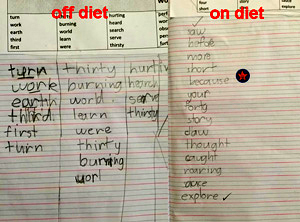 off diet
on diet
turn burning hurting
work world heard
earth learn search
third were serve
first thirty thirsty
four
short
story
sauce
explore
turn thirty
work burning
earth word
third learn thirsty
first were
turn thirty
burning
worl
before
more
short
because
your
forty
story
daw
thought
caught
roaring
explore